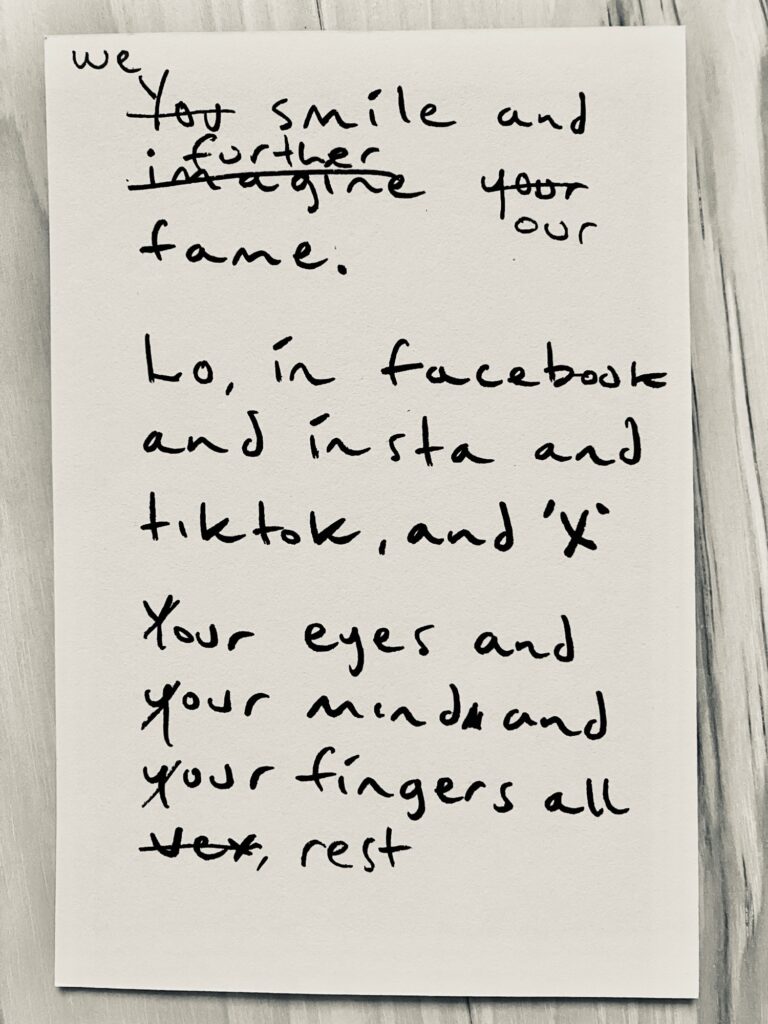 we
You smile and
further
imagine your
our
fame.
Lo, in facebook
and insta and
tiktok, and 'X'
Your eyes and
your mind and
your fingers all
vex, rest